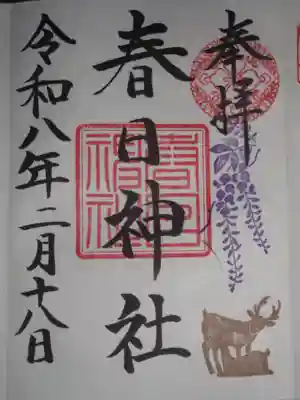 奉拝
春日神社
春日
神社
令和八年二月十八日